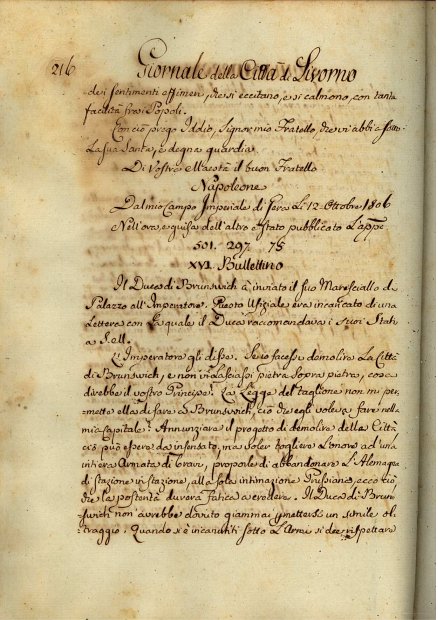 216 Giornale della Città di Livorno
dei sentimenti effimeri, che si eccitano, e si calmono, con tanta
facilità frà i Popoli.
Con ciò prego Iddio, Signor mio Fratello, che vi abbia sotto
La sua Santa, e degna guardia.
Di Vostra Maestà il buon Fratello
Napoleone
Dal mio Campo Imperiale di Gera Li 12 Ottobre 1806
Nell'ora, e guisa dell'altro è stato pubblicato L'appe.
501. 297. 75
XVI. Bullettino
Il Duca di Brunswich à inviato il suo Maresciallo di
Palazzo all'Imperatore. Questo Ufiziale era incaricato di una
Lettera con La quale il Duca raccomandava i suoi Stati
a S.M.
L'Imperatore gli disse. Se io facessi demolire La Città
di Brunswich, e non in Lasciassi pietra sopra pietra, cosa
direbbe il vostro Principe? La Legge del taglione non mi per-
mette ella di fare à Brunswich, ciò che egli voleva fare nella
mia Capitale? Annunziare il progetto di demolire della Città
ciò può essere da insensato, ma voler togliere L'onore ad una
intiera Armata di bravi, proporle di abbandonare L'Alemagna
di stazione in stazione, alla sola intimazione Prussiana, ecco ciò
che la posterità durerà fatica a credere. Il Duca di Brun-
swich non avrebbe dovuto giammai permettersi un simile ol-
traggio. Quando si è incanutiti sotto L'Armi si dee rispettare